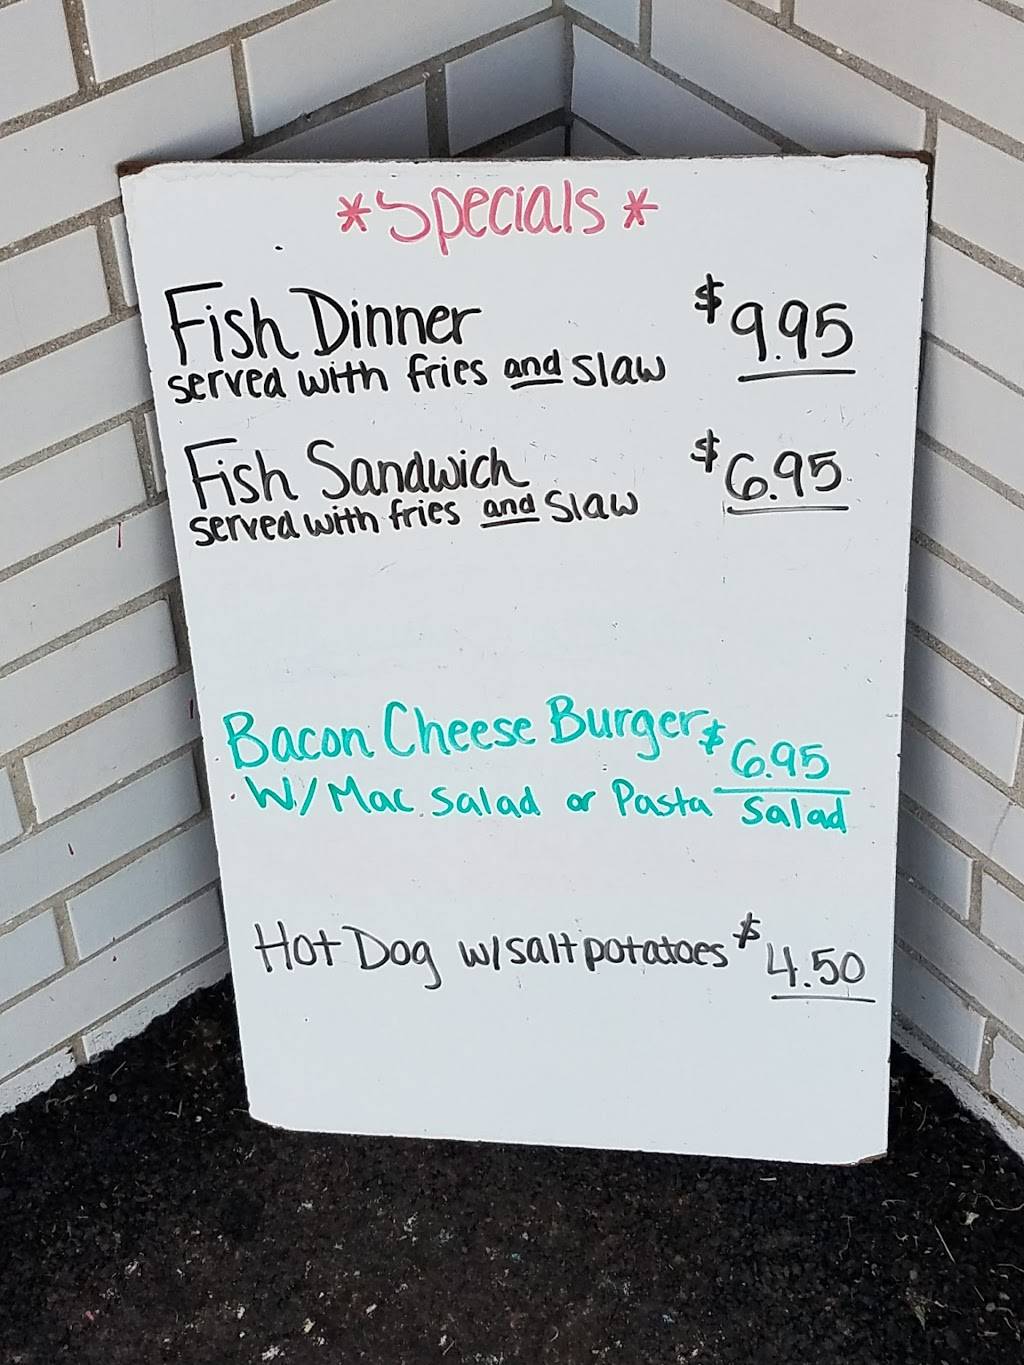 *Specials*
Fish Dinner $9.95
served with fries and slaw
Fish Sandwich $6.95
served with fries and slaw
Bacon Cheese Burger $6.95
W/Mac Salad or Pasta Salad
Hot Dog w/salt potatoes $4.50